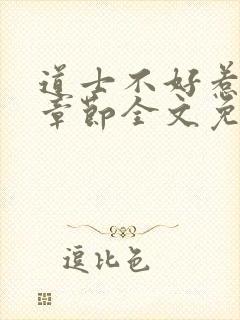 道士不好惹
章节全文免
逗比色